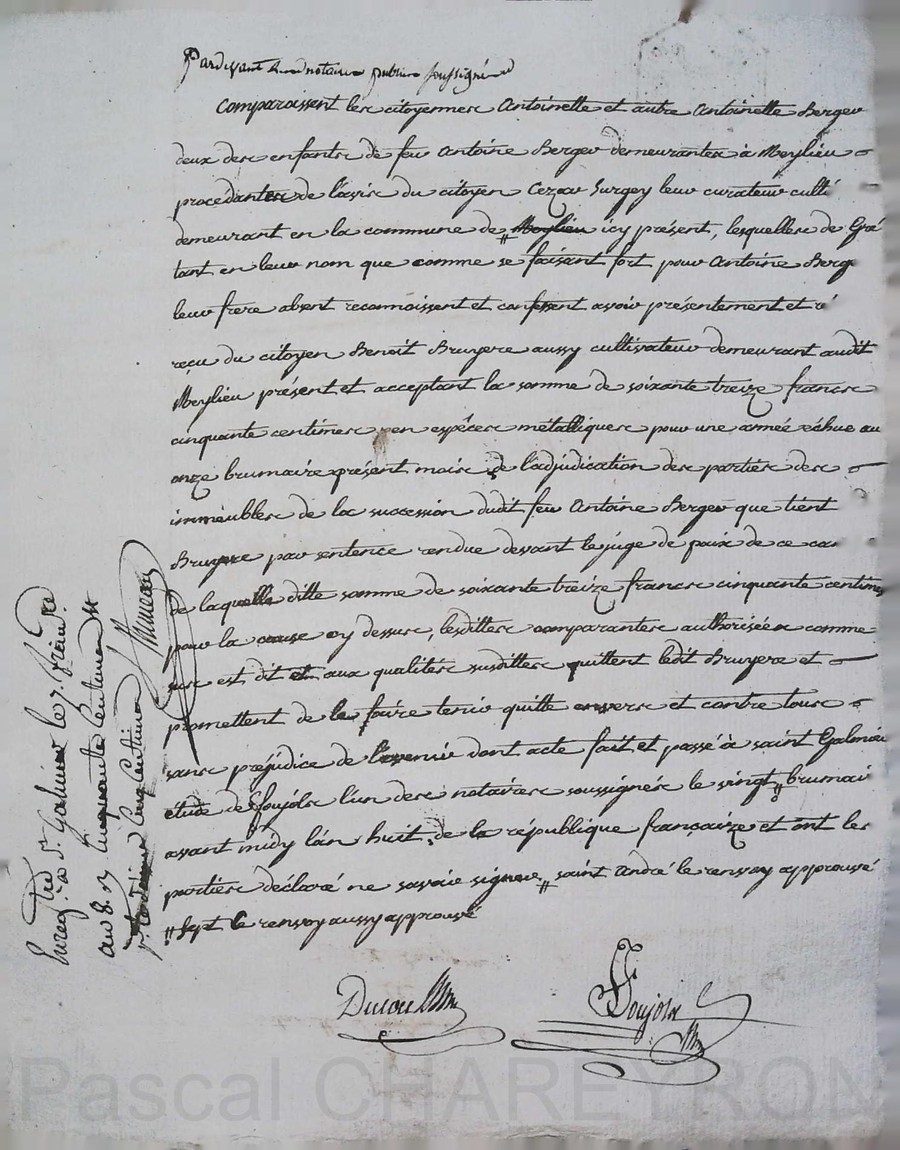 Pardevant Les notaires publics soussignés
Comparaissent les citoyennes Antoinette et autre Antoinette Berger
deux des enfants de feu Antoine Berger demeurantes à Meylieu
procedantes de l'avis du citoyen Cezar Surgey leur curateur culti
demeurant en la commune de Meylieu icy présent, lesquelles de Gré
tant en leur nom que comme se faisant fort pour Antoine Berg
leur frere absent reconnoissent et confessent avoir présentement et ré
reçu du citoyen Benoit Bruyere aussy cultivateur demeurant audit
Meylieu présent et acceptant la somme de soixante treize francs
cinquante centimes en espéces métalliques pour une année échue au
onze brumaire présent mois de l'adjudication des parties des
immeubles de la succession dudit feu Antoine Berger que tient
Bruyere par sentence rendue devant le juge de paix de ce can
de laquelle ditte somme de soixante treize francs cinquante centimes
pour la cause cy dessus, lesdittes comparantes authorisées comme
est dit et aux qualités susdittes quittent ledit Bruyere et
promettent de le faire tenir quitte envers et contre tous
sans préjudice de l'avenir dont acte fait et passé à saint Galmier
étude de Foujols l'un des notaires soussignés le vingt brumai
avant midy l'an huit de la république françaize et ont les
parties déclaré ne savoir signer saint André le renvoy approuvé
Sept le renvoy aussy approuvé
Foujols
Enregtré à St Galmier le 7. frim.
an 8. cinquante centimes
Pascal CHAREYRON